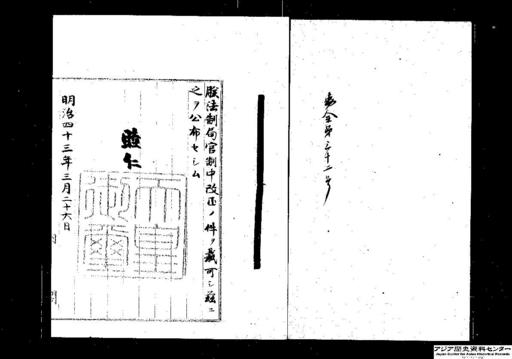 勅令第三十二号
朕法制局官制中改正ノ件ヲ裁可シ茲ニ
之ヲ公布セシム
睦仁
天皇御璽
明治四十三年三月二十六日
内閣
アジア歴史資料センター
Japan Center for Asian Historical Records